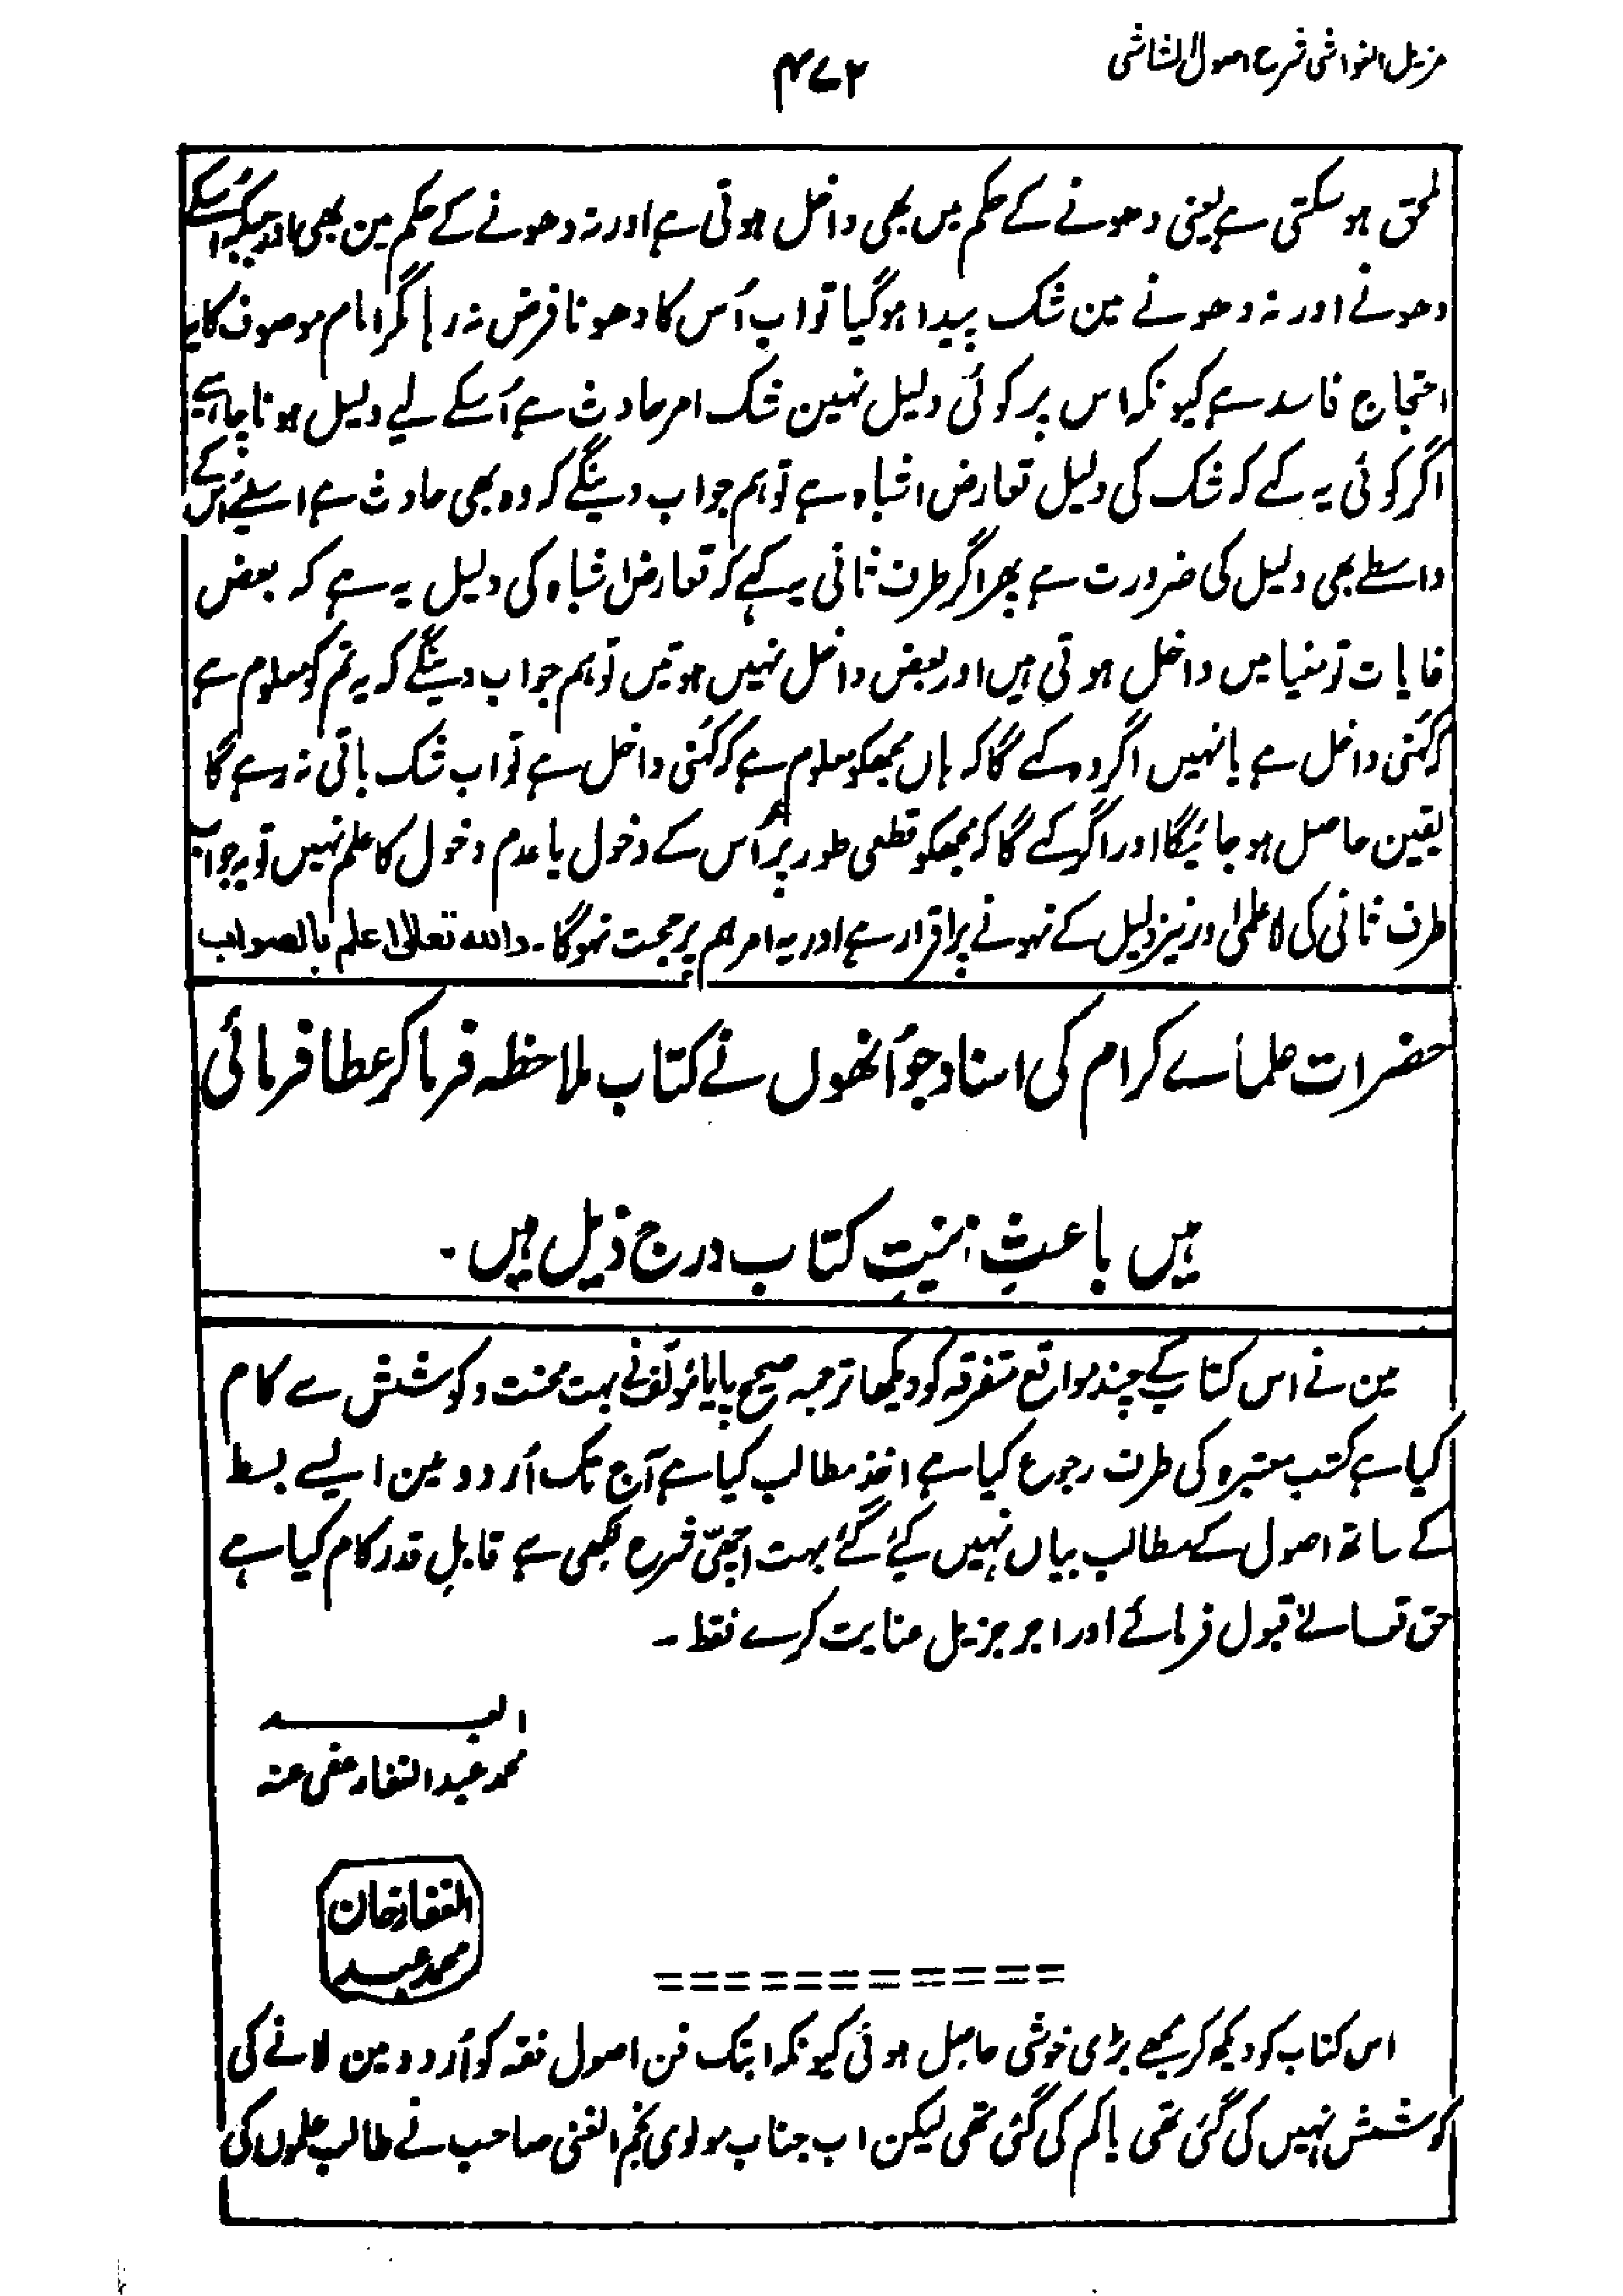 مزیل الغواشی شرح اصول الشاشی
۴۷۲
لمحق ہوسکتی ہے یعنی دھونے کے حکم میں بھی داخل ہوتی ہے اور نہ دھونے کے حکم مین بھی اور جبکہ اُسکے
دھونے اور نہ دھونے مین شک پیدا ہوگیا تو اب اُس کا دھونا فرض نہ رہا مگر امام موصوف کا یہ
احتجاج فاسد ہے کیونکہ اس پر کوئی دلیل نہین شک امر حادث ہے اُسکے لیے دلیل ہونا چاہیے
اگر کوئی یہ کہے کہ شک کی دلیل تعارض اشباہ ہے تو ہم جواب دینگے کہ وہ بھی حادث ہے اسلیے اُس کے
واسطے بھی دلیل کی ضرورت ہے پھر اگر طرف ثانی یہ کہے کہ تعارض اشباہ کی دلیل یہ ہے کہ بعض
غایات تو مغیا میں داخل ہوتی ہیں اور بعض داخل نہیں ہوتیں تو ہم جواب دینگے کہ یہ تم کو معلوم ہے
کہ کہنی داخل ہے یا نہیں اگر وہ کہے گا کہ ہاں مجھکو معلوم ہے کہ کہنی داخل ہے تو اب شک باقی نہ رہے گا
یقین حاصل ہو جائیگا اور اگر کہے گا کہ مجھکو قطعی طور پر اُس کے دخول یا عدم دخول کا علم نہیں تو یہ جواب
طرف ثانی کی لاعلمی اور نیز دلیل کے نہونے پر اقرار ہے اور یہ امر ہم پر حجت نہوگا ۔ واللہ تعالیٰ اعلم بالصواب
حضرات علماے کرام کی اسناد جو اُنھوں نے کتاب ملاحظہ فرماکر عطا فرمائی
ہیں باعث زینتِ کتاب درج ذیل ہیں ۔
مین نے اس کتاب کے چند مواقع متفرقہ کو دیکھا ترجمہ صحیح پایا مؤلف نے بہت محنت و کوشش سے کام
کیا ہے کتب معتبرہ کی طرف رجوع کیا ہے اخذ مطالب کیا ہے آج تک اُردو مین ایسے بسط
کے ساتھ اصول کے مطالب بیاں نہیں کیے گئے بہت اچھی شرح لکھی ہے قابلِ قدر کام کیا ہے
حق تعالےٰ قبول فرمائے اور اجر جزیل عنایت کرے فقط ۔
العبد
محمد عبد الغفار عفی عنہ
الغفار خان
محمد عبد
اس کتاب کو دیکھ کر مجھے بڑی خوشی حاصل ہوئی کیونکہ ابتک فن اصول فقہ کو اُردو مین لانے کی
کوشش نہیں کی گئی تھی یا کم کی گئی تھی لیکن اب جناب مولوی نجم الغنی صاحب نے طالب علموں کی